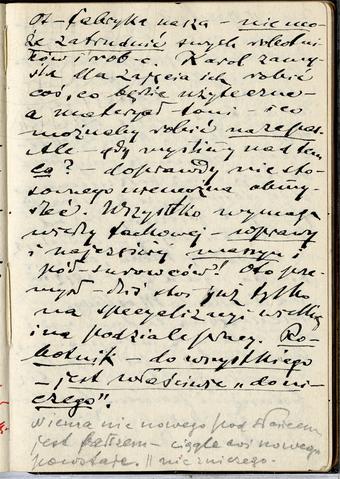 Ot – fabryka nasza – nie mo-
że zatrudnić swych robotni-
ków i rob-c. Karol zamy-
śla dla zajęcia ich robić
coś, co będzie użyteczne –
a materjał tani – i co
możnaby robić na zapas.
Ale – gdy myślimy nad tem
co? – doprawdy nic sto-
sownego niemożna obmy-
śleć. Wszystko wymaga
wiedzy fachowej – wprawy
i najczęściej maszyn i
pół-surowców! Oto prze-
mysł – dziś stoi już tylko
na specyalizacyi wielkiej
i na podziale pracy. Ro-
botnik – do wszystkiego
– jest właściwie „do ni-
czego".
Niema nic nowego pod słońcem
jest fałszem – ciągle coś nowego
powstaje. Nic z niczego.